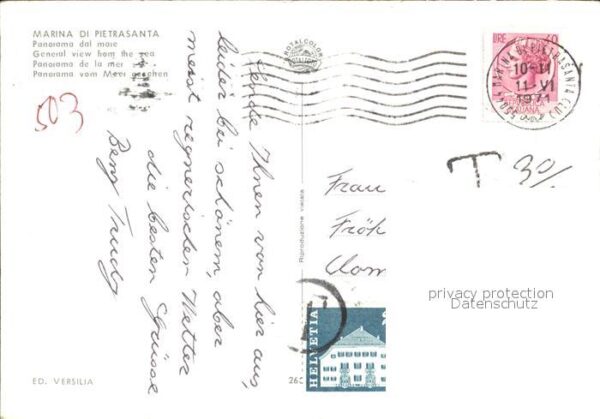 MARINA DI PIETRASANTA
Panorama dal mare
General view from the sea
Panorama de la mer
Panorama vom Meer gesehen
503
Sende Ihnen von hier aus,
leider bei schönem, aber
meist regnerischen Wetter
die besten Grüsse
Berg Trudy
ED. VERSILIA
ROTALCOLOR
Riproduzione vietata
260
LIRE
ITALIANA
MARINA DI PIETRASANTA
10-11
11-VI
1971
T 30/
Frau
Fröh
HELVETIA
privacy protection
Datenschutz